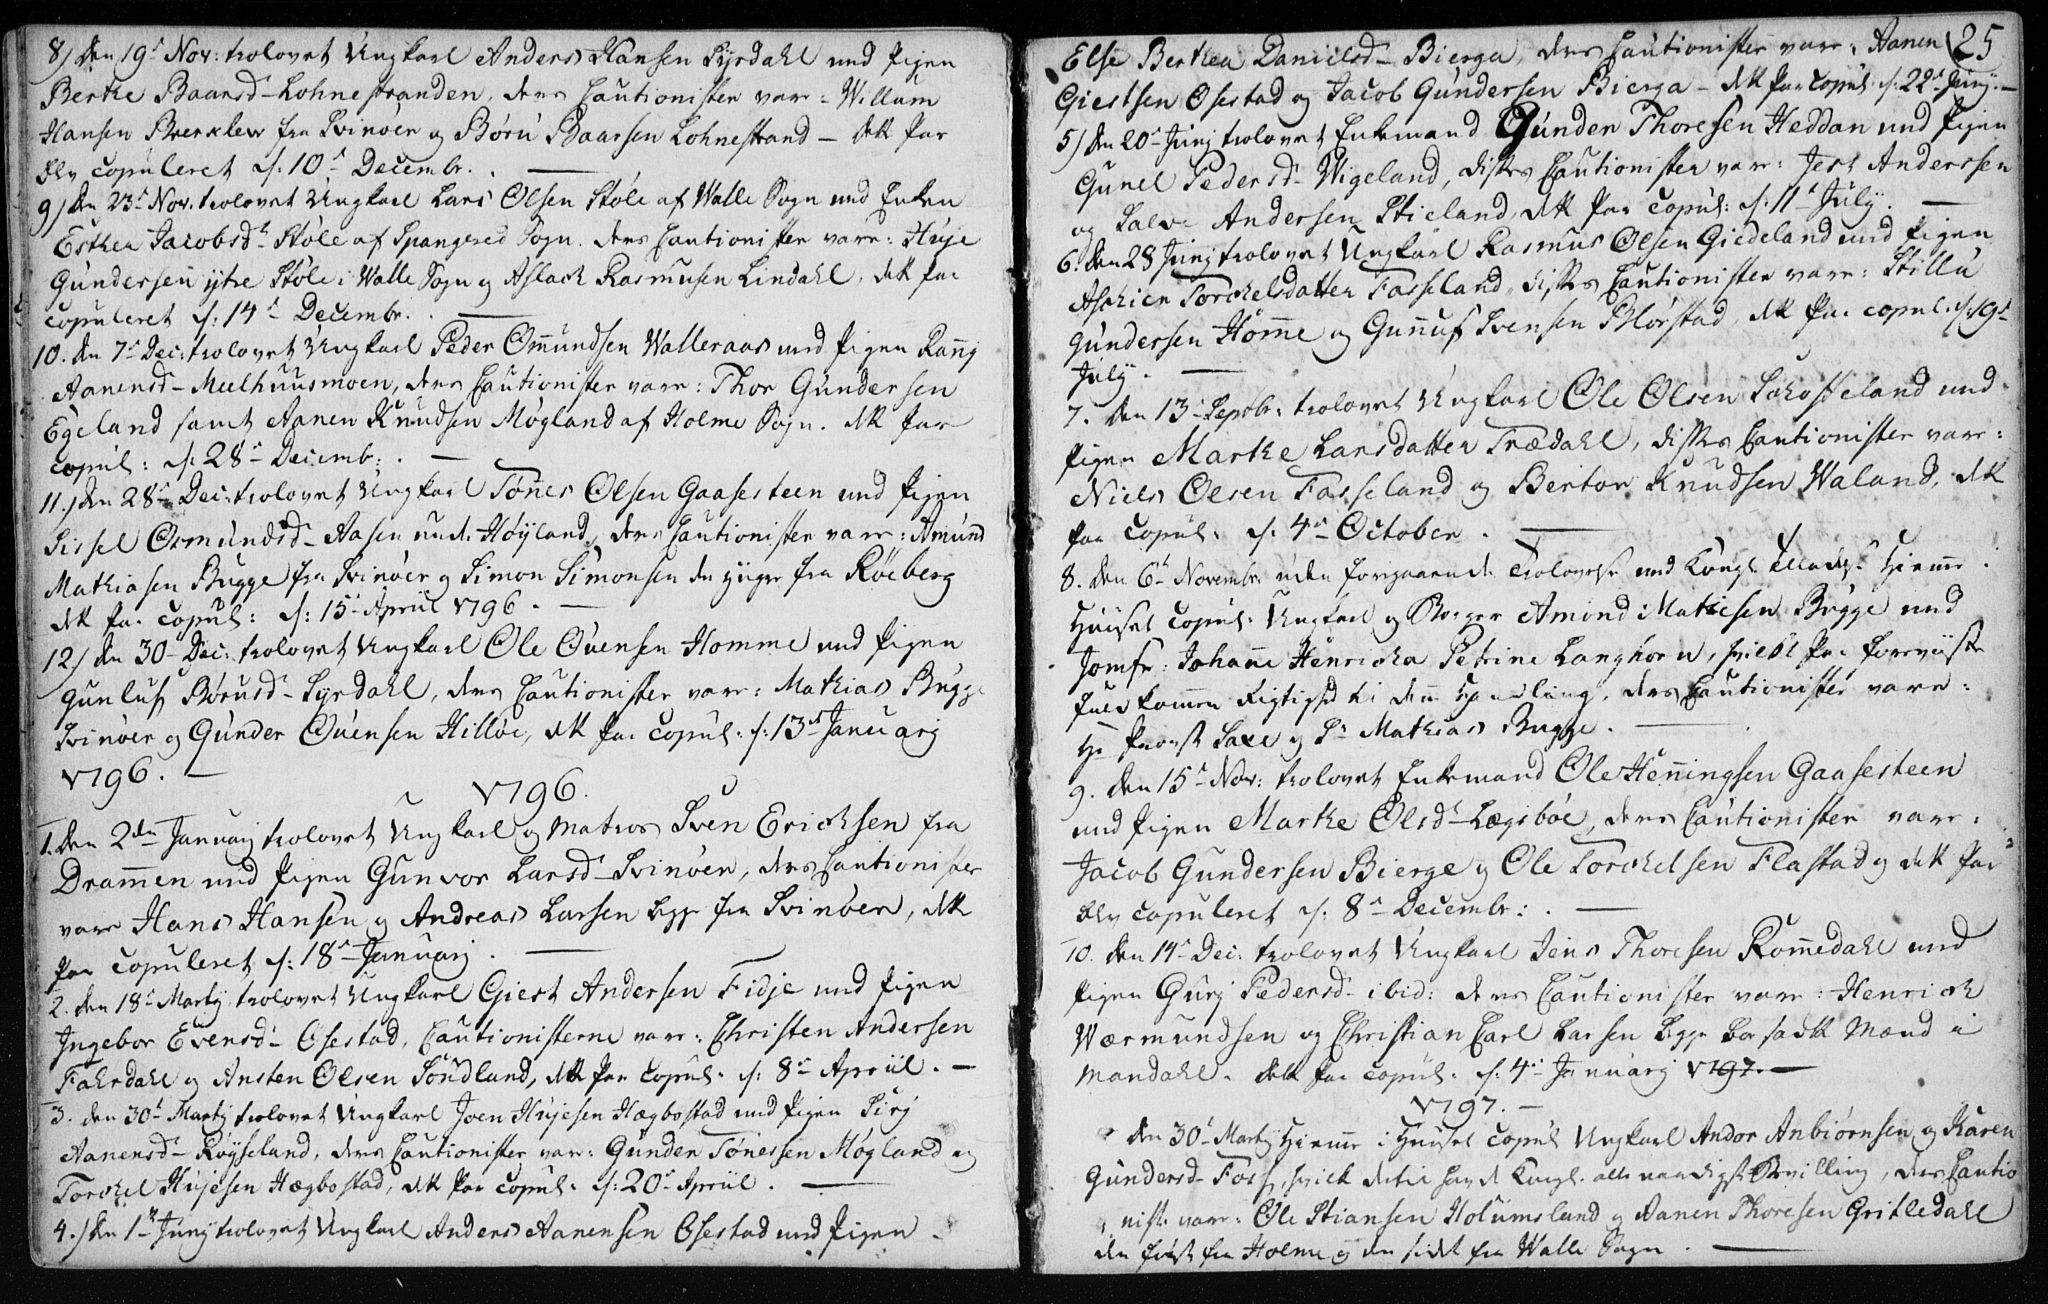 8) den 19d Nov: trolovet Ungkarl Anders Hansen Syrdahl med Pigen
Berthe Baarsd- Lohnestranden, deres Cautionister vare: Willum
Hansen fra Svinøer og Børu Baarsen Lohnestrand — dette Par
blev copuleret d: 10d Decembr. —
9) den 23d Nov. trolovet Ungkarl Lars Olsen Støle af Walle Sogn med Enken
Esther Jacobsdr Støle af Spangered Sogn. deres Cautionister vare: Huje
Gundersen ytre Støle i Walle Sogn og Aslach Rasmusen Lindahl, dette Par
copuleret d: 14d Decembr. . —
10. den 7d Dec: trolovet Ungkarl Peder Omundsen Walleraas med Pigen Rannj
Aanensd- Meelhuusmoen, deres Cautionister vare: Thor Gundersen
Egeland samt Aanen Knudsen Møgland af Holme Sogn. dette Par
copul: d: 28d Decemb: . —
11.) den 28d Dec: trolovet Ungkarl Tønnes Olsen Gaasesteen med Pigen
Sissel Ormundsd- Aasen und: Høyland, deres Cautionister vare: Amund
Mathiasen Bugge fra Svinøer og Simon Simonsen den yngre fra Røeberg
dette Par copul: d: 15d Apriil 1796. —
12) den 30- Dec: trolovet Ungkarl Ole Ouensen Homme med Pigen
Gunluf Børusd- Syrdahl, deres Cautionister vare: Mathias Bugge
Svinøer og Gunder Ouensen Hilløe, dette Par copul: d: 13d Januarij
1796. —
1796.
1. den 2den Januarij trolovet Ungkarl og Matros Sven Erichsen fra
Drammen med Pigen Gunvor Larsd- Svinøer, deres Cautionister
vare Hans Hansen og Andreas Larsen begge fra Svinøer, dette
Par copuleret d: 18d Januarij. —
2. den 18d Martij trolovet Ungkarl Giest Andersen Fidje med Pigen
Ingebor Evensd- Osestad, Cautionisterne vare: Christen Andersen
Fahrdahl og Ansten Olsen Søndland, dette Par copul: d: 8d Apriil. —
3. den 30d Martij trolovet Ungkarl Joen Hujesen Hægbostad med Pigen Sirj
Aanensd- Røyseland, deres Cautionister var: Gunder Tønessen Møgland og
Torchel Hujesen Hægbostad, dette Par copul: d: 20d Apriil. —
4.) den 1d Junij trolovet Ungkarl Anders Aanensen Osestad med Pigen
25
Else Berthea Danielsd- Bierga, deres Cautionister vare: Aanen
Giestsen Osestad og Jacob Gundersen Bierga — dette Par copul: d: 22d Junij. —
5) den 20d Junij trolovet Enkemand Gunder Thoresen Heddan med Pigen
Gunel Pedersd- Wigeland, disses Cautionister var: Jest Anderssen
og Salve Andersen Stieland, dette Par copul: d: 11d July. —
6. den 28 Junij trolovet Ungkarl Rasmus Olsen Giedeland med Pigen
Aschier Torchelsdatter Fasseland, disses Cautionister vare: Stillu
Gundersen Homme og Gunnuf Svensen Blørstad, dette Par copul. d: 19d
July. —
7. den 13d Septbr: trolovet Ungkarl Ole Olsen Schofteland med
Pigen Marthe Larsdatter Trædahl, disses Cautionister vare:
Niels Olsen Fasseland og Bertor Knudsen Waland, dette
Par copul: d: 4d October. —
8. den 6d Novembr. uden foregaaende Trolovelse med Kongl. Allernaadigst Hiemme i
Huuset copul: Ungkarl og Borger Amund Matiesen Bugge med
Jomfr: Johanne Henricka Petrine Langhorn, hvilket Par foreviiste
fuldkommen Rigtighed til denne Handling, deres Cautionister vare:
Hr Provst Saxe og Sr Mathias Bugge. —
9. den 15d Nov: trolovet Enkemand Ole Henningsen Gaasesteen
med Pigen Marthe Olsdr Lægsbøe, deres Cautionister vare:
Jacob Gundersen Bierge og Ole Torchelsen Flastad og dette Par
blev copuleret d: 8d Decembr: . —
10. den 14d Dec: trolovet Ungkarl Jens Thoresen Rommedahl med
Pigen Gurj Pedersd- ibid: deres Cautionister vare: Henrich
Wærmundsen og Christian Carl Larsen begge bosadte Mænd i
Mandahl. dette Par copul: d: 4d Januarij 1797. —
1797. —
den 30d Martij Hiemme i Huuset copul Ungkarl Andor Anbiørnsen og Karen
Gundersd- Foss, hvilket dertil havde Kongl. allernaadigst Bevilling, deres Cautio
niste vare: Ole Stiansen Holumsland og Aanen Thoresen Gritledahl
den første fra Holme og den sidst fra Walle Sogn. —